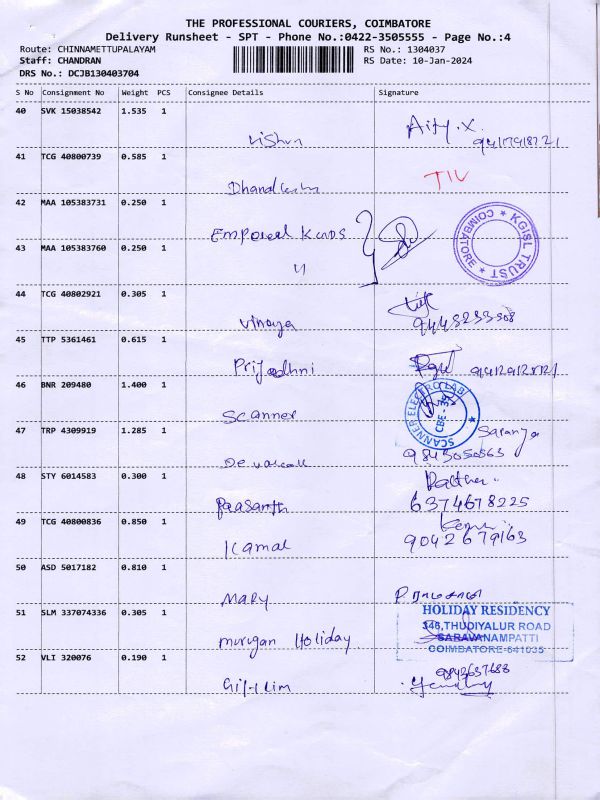 THE PROFESSIONAL COURIERS, COIMBATORE
Delivery Runsheet - SPT - Phone No.:0422-3505555 - Page No.:4
Route: CHINNAMETTUPALAYAM RS No.: 1304037
Staff: CHANDRAN RS Date: 10-Jan-2024
DRS No.: DCJB130403704
S No Consignment No Weight PCS Consignee Details Signature
40 SVK 15038542 1.535 1
Vishnu
41 TCG 40800739 0.585 1
42 MAA 105383731 0.250 1
KGISL TRUST * COIMBATORE *
43 MAA 105383760 0.250 1
11
44 TCG 40802921 0.305 1
Vinaya
45 TTP 5361461 0.615 1
46 BNR 209480 1.400 1
Scanner
SCANNER ELECTRO LAB CBE-35
47 TRP 4309919 1.285 1
Saranya
9843050563
48 STY 6014583 0.300 1
6374678225
49 TCG 40800836 0.850 1
Kamal 9042679163
50 ASD 5017182 0.810 1
Mary
51 SLM 337074336 0.305 1
murugan Holiday
HOLIDAY RESIDENCY
346,THUDIYALUR ROAD
SARAVANAMPATTI
COIMBATORE-641035
52 VLI 320076 0.190 1
9842637688